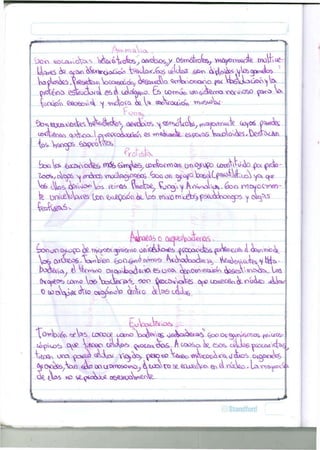 Animalia
Son eucariotas heterótrofos, aerobios y osmótrofos, mayormente multice-
lulares de gran diferenciación tisular. Sus células son diploides y los gametos
haploides. Presentan locomoción, desarrollo embrionario por blastulación y la
proteína estructural es el colágeno. Es común un sistema nervioso para la
función sensorial y motora de la motricidad muscular.
Fungi
Son eucariotes heterótrofos, aerobios y osmótrofos, mayormente cuya pared
contiene quitina. La reproducción es mediante esporas haploides. Destacan
los hongos saprófitos.
Protista
Son los eucariotes más simples, conforman un grupo constituido por proto-
zoos, algas y mohos mucilaginosos. Son un grupo basal (parafilético) ya que
de ellos derivan los reinos Plantae, Fungi y Animalia. Son mayormen-
te unicelulares con excepción de los mixomicetes, pseudohongos y algas
Árqueas o arqueobacterias
Son un grupo de microorganismos unicelulares procariotas pertenecen al dominio de
los arqueas. También son conformados Archaebacteria, Mendosicutes y Meta-
bacteria, el término arqueobacteria es una denominación desestimada. Los
arqueas como las bacterias, son procariotes que carecen de núcleo celular
o cualquier otro orgánulo dentro de las células.
Eubacterias
También se las conoce como bacterias verdaderas. Son organismos micros-
cópicos que tienen células procariotas. A causa de esas células procariotas,
tienen una pared celular rígida, pero no tienen mitocondria u otros organelos
grandes, tan solo un cromosoma, el cual no se encuentra en el núcleo. La mayoría
de ellas se reproduce asexualmente.
Standford